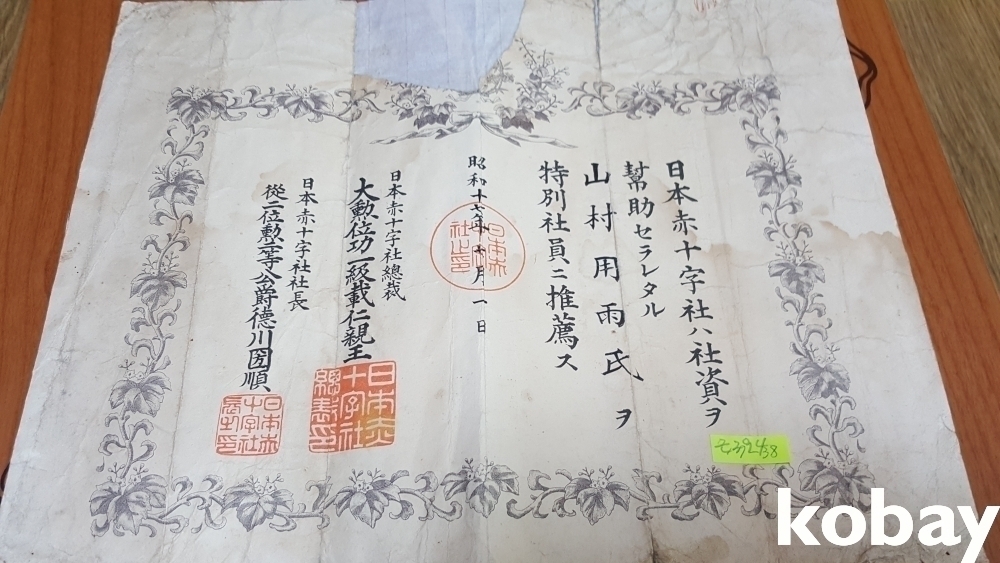 日本赤十字社ハ社資ヲ
幇助セラレタル
山村用雨氏ヲ
特別社員ニ推薦ス
昭和十六年十月一日
日本赤十字社總裁
大勲位功一級載仁親王
日本赤十字社社長
從二位勲一等公爵德川圀順
日本赤十字社總裁印
日本赤十字社長之印
日本赤十字社之印
kobay